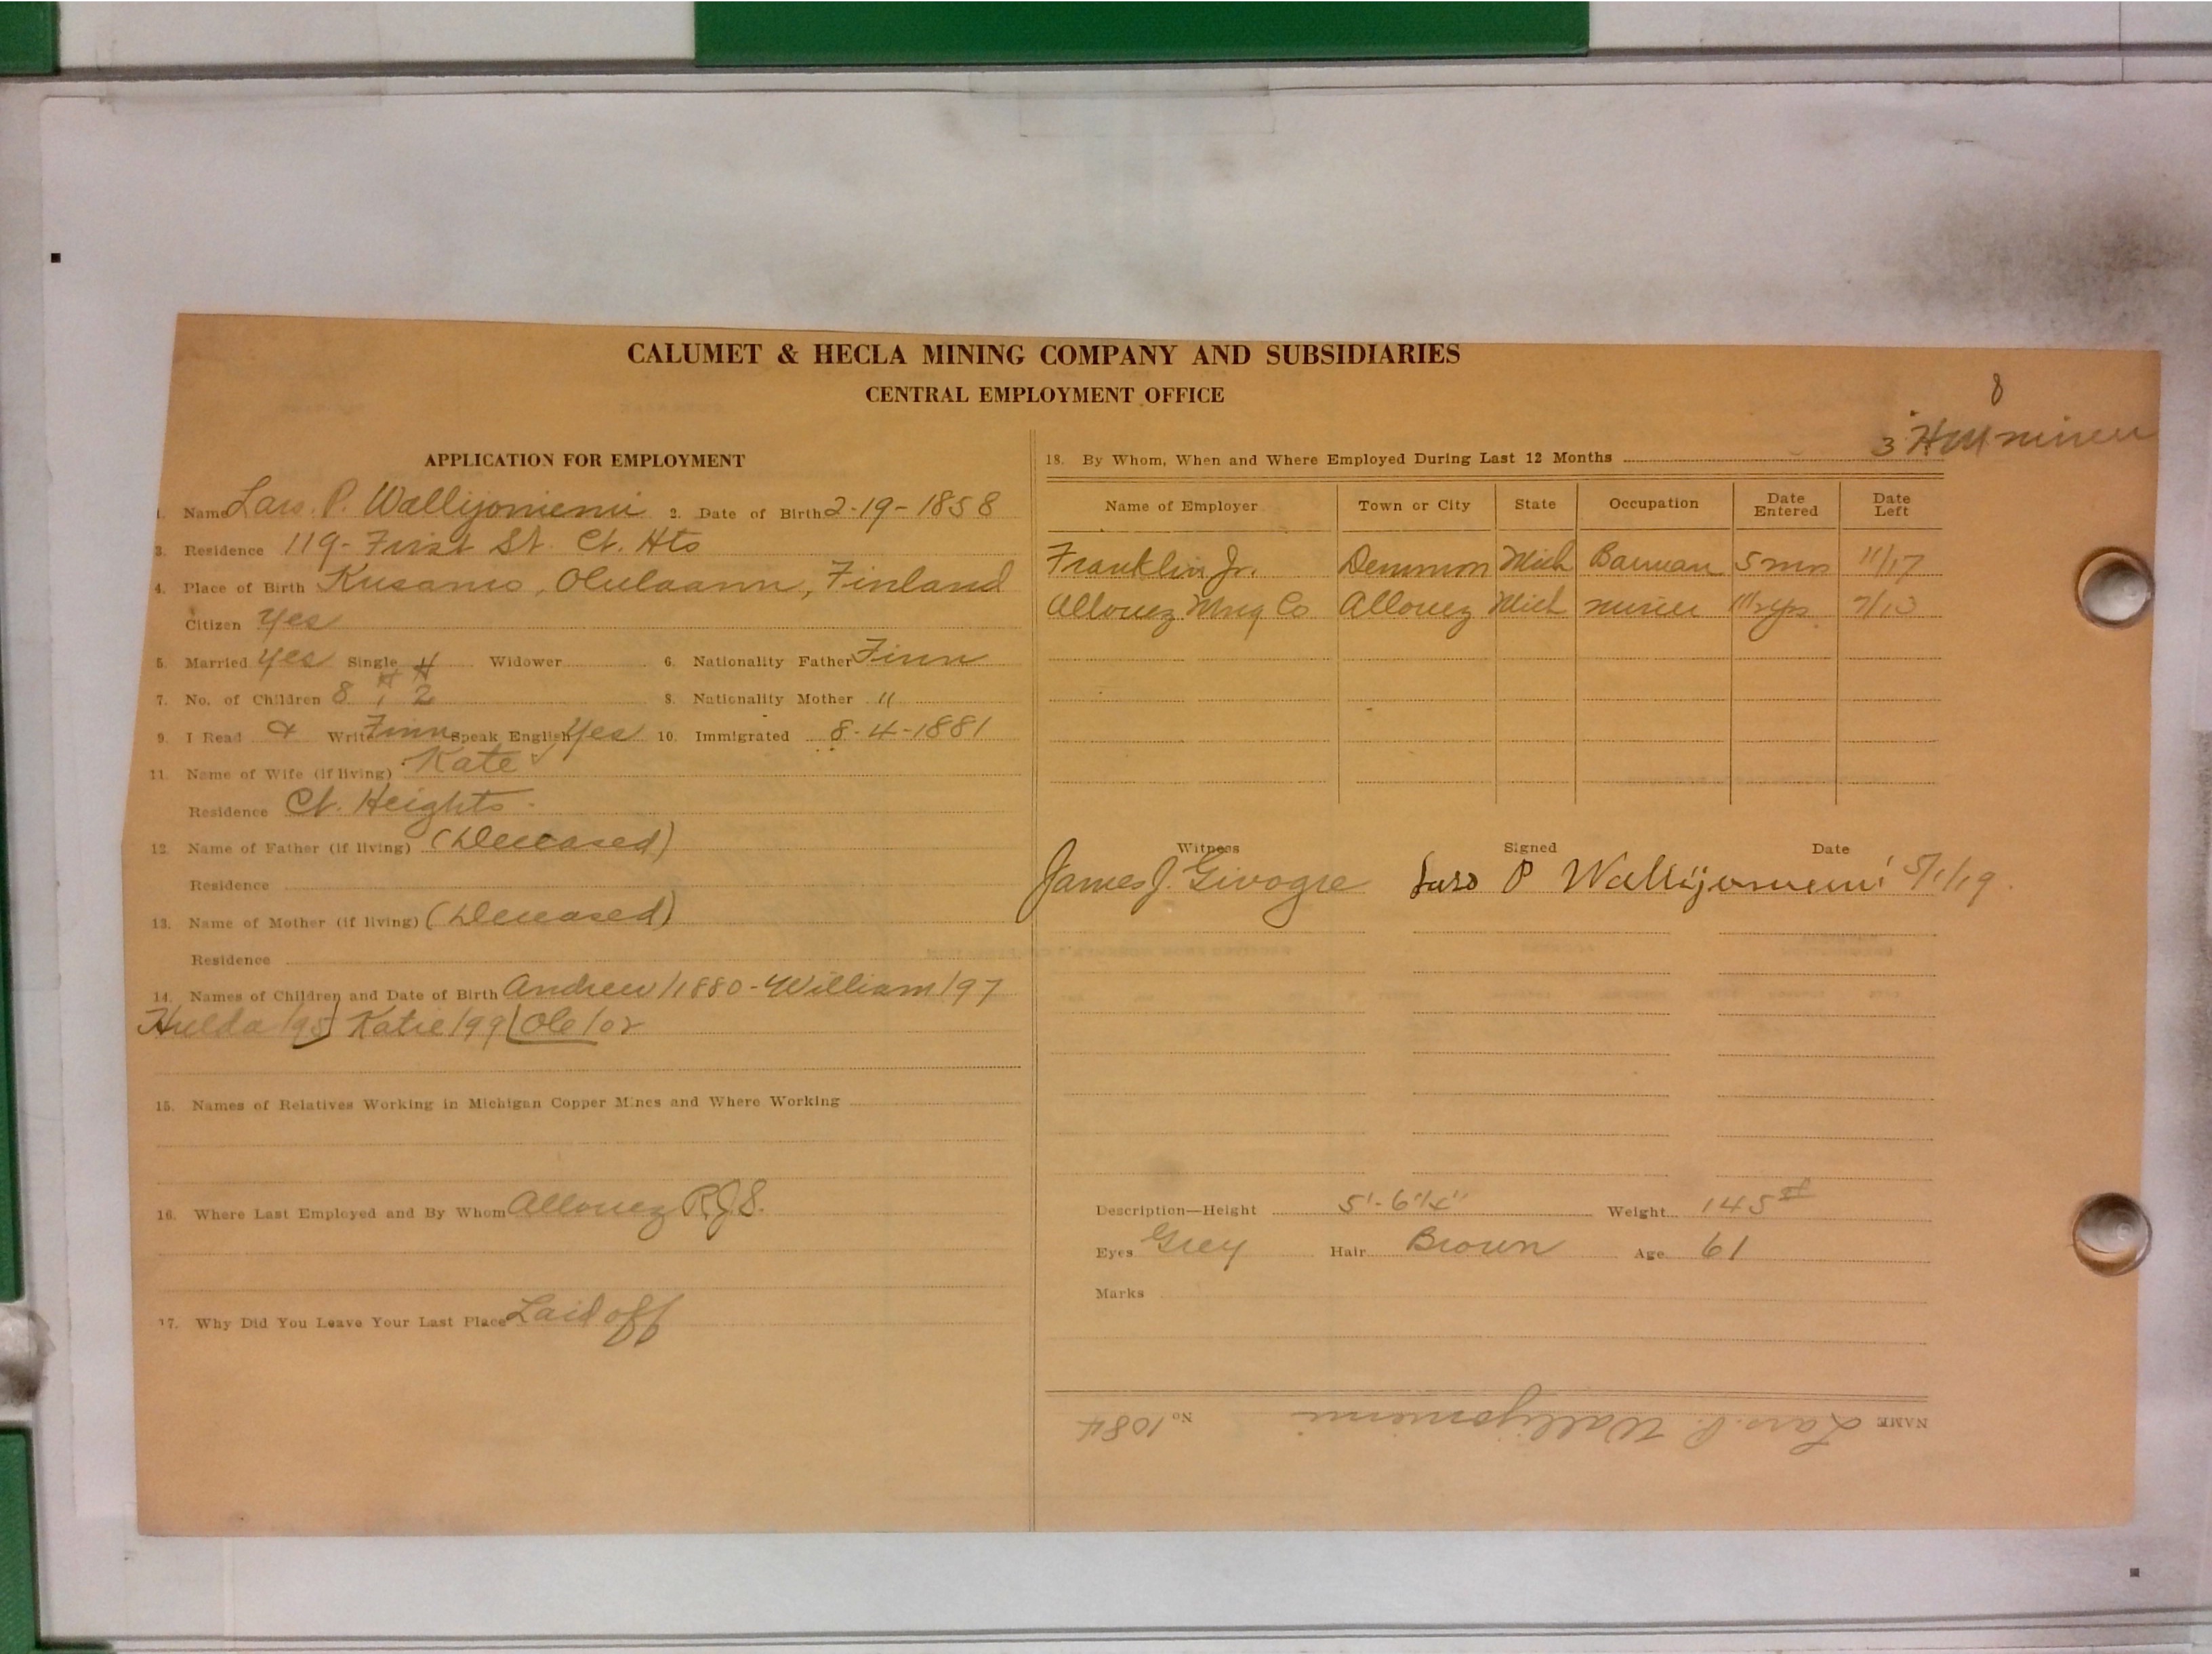 CALUMET & HECLA MINING COMPANY AND SUBSIDIARIES
CENTRAL EMPLOYMENT OFFICE
8
3 miner
APPLICATION FOR EMPLOYMENT
1. Name Lars. P. Wallijoniemi 2. Date of Birth 2-19-1858
3. Residence 119- First St. Ct. Hts
4. Place of Birth Kusamo, Olulaann, Finland
Citizen Yes
5. Married Yes Single Widower 6. Nationality Father Finn
7. No. of Children 8 1 2 8. Nationality Mother "
9. I Read & Write Finn Speak English Yes 10. Immigrated 8-4-1881
11. Name of Wife (if living) Kate
Residence Ct. Heights
12. Name of Father (if living) (Deceased)
Residence
13. Name of Mother (if living) (Deceased)
Residence
14. Names of Children and Date of Birth Andrew/1880-William/97
Hulda/95/ Katie/99/ Ole/02
15. Names of Relatives Working in Michigan Copper Mines and Where Working
16. Where Last Employed and By Whom Allouez R.J.S.
17. Why Did You Leave Your Last Place Laid off
18. By Whom, When and Where Employed During Last 12 Months
Name of Employer Town or City State Occupation Date Entered Date Left
Franklin Jr. Demmon Mich 5 mos 11/17
Allouez Mng Co Allouez Mich miner
Witness Signed Date
James J. Givogre Lars P Wallijoniemi 5/1/19.
Description—Height 5'-6 Weight 145
Eyes Grey Hair Brown Age 61
Marks
NAME Lars. P. Wallijoniemi No 1084